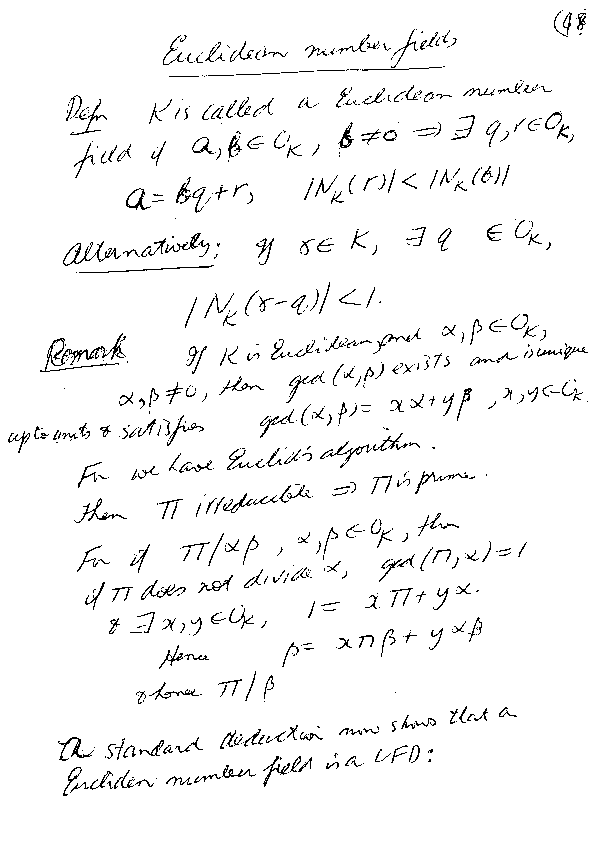 (48
Euclidean number fields
Defn K is called a Euclidean number
field if a, b ∈ O_K, b ≠ 0 ⇒ ∃ q, r ∈ O_K,
a = bq + r, |N_K(r)| < |N_K(b)|
Alternatively: If γ ∈ K, ∃ q ∈ O_K,
|N_K(γ-q)| < 1.
Remark If K is Euclidean and α, β ∈ O_K,
α, β ≠ 0, then gcd (α, β) exists and is unique
up to units & satisfies gcd (α, β) = xα + yβ, x, y ∈ O_K
For we have Euclid's algorithm.
Then π irreducible ⇒ π is prime.
For if π/αβ, α, β ∈ O_K, then
if π does not divide α, gcd (π, α) = 1
& ∃ x, y ∈ O_K, 1 = xπ + yα.
Hence β = xπβ + yαβ
& hence π/β
A standard deduction now shows that a
Eucliden number field is a UFD: